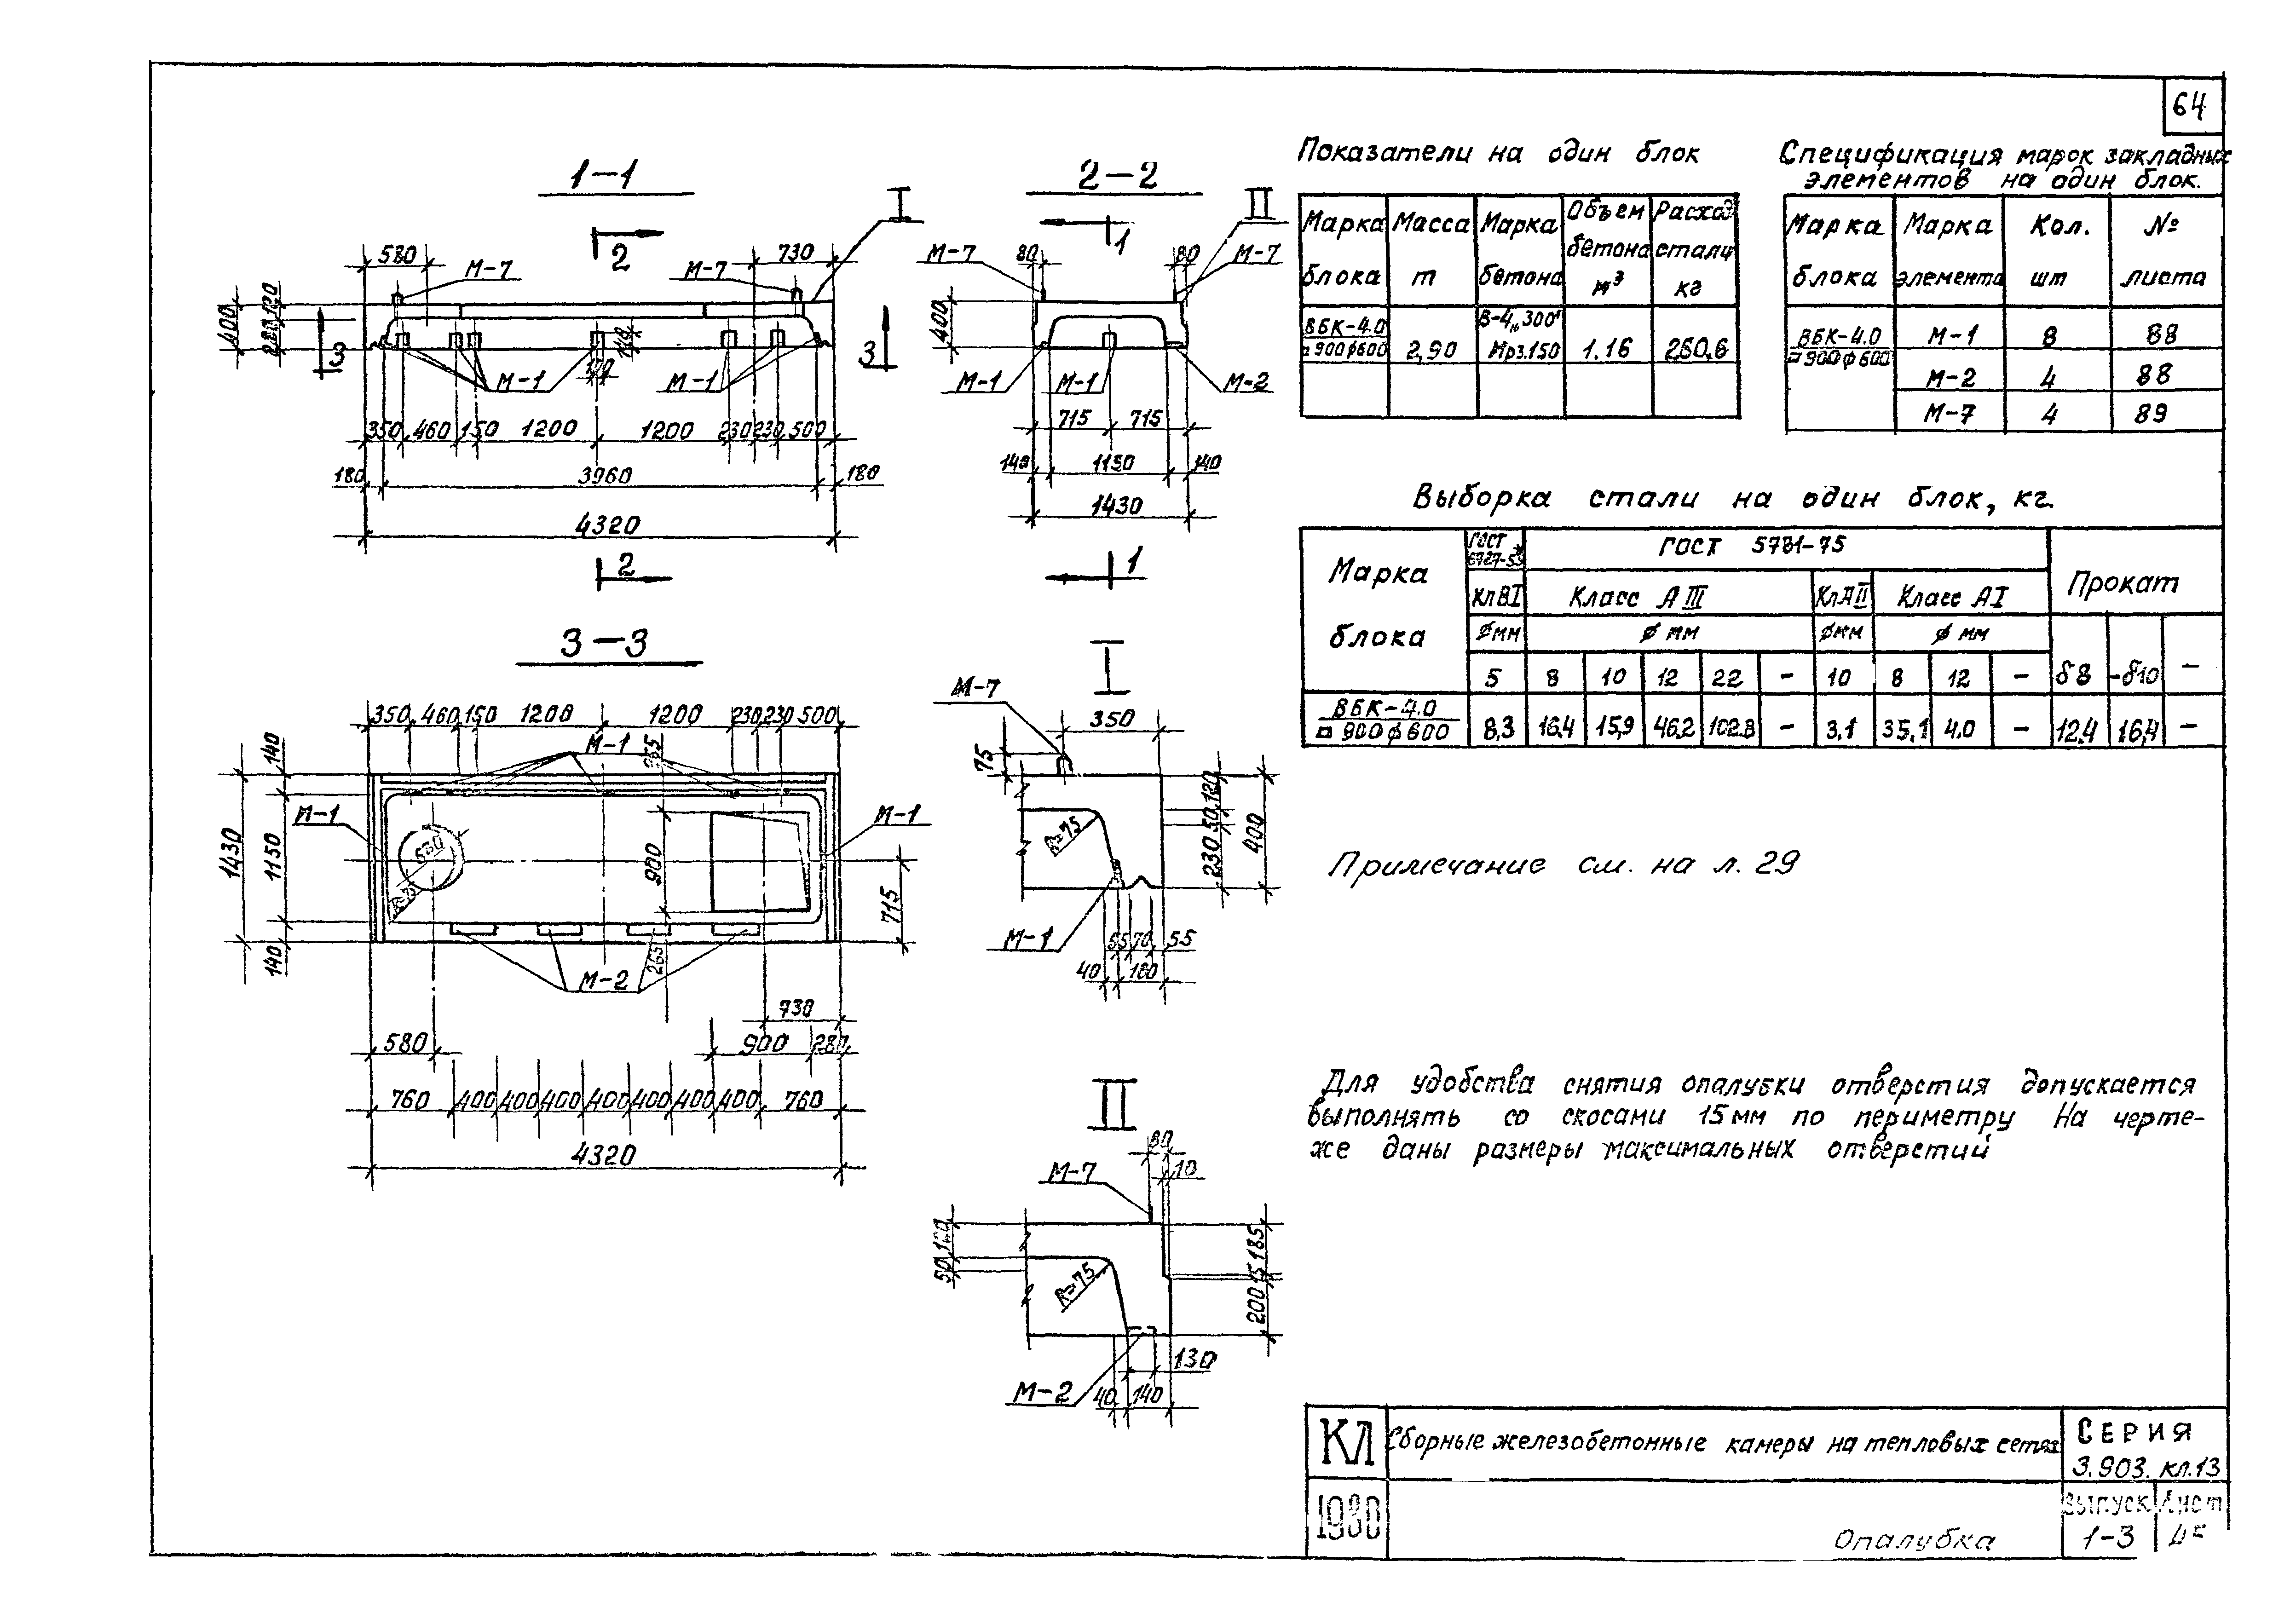 64
1-1
2-2
I
II
2
1
580
М-7
М-7
730
80
М-7
80
М-7
400
280 120
3
3
М-1
М-1
400
М-1
М-1
М-2
350 460 150 1200 1200 230 230 500
180 3960 180
4320
2
715 715
140 1150 140
1430
1
3-3
350 460 150 1200 1200 230 230 500
М-1
140
М-1
М-1
1430
1150
900
715
140
М-2
265
730
580
900 280
760 400 400 400 400 400 400 400 760
4320
I
М-7
350
75
R=75
230 50 120
400
М-1
55 70 55
40 180
II
80
10
М-7
50
R=75
200 15 185
130
М-2
40 140
Показатели на один блок
Марка блока
Масса т
Марка бетона
Объем бетона м³
Расход стали кг
ВБК-4.0
□ 900 ф 600
2,90
В-4, 300
Мрз.150
1.16
260.6
Спецификация марок закладных
элементов на один блок.
Марка блока
Марка элемента
Кол. шт
№ листа
ВБК-4.0
□ 900 ф 600
М-1 8 88
М-2 4 88
М-7 4 89
Выборка стали на один блок, кг.
Марка блока
ГОСТ
6727-53*
ГОСТ 5781-75
Прокат
КлВI
Класс А III
КлАII
Класс АI
ϕмм
ϕ мм
ϕмм
ϕ мм
5 8 10 12 22 - 10 8 12 - δ8 -δ10 -
ВБК-4.0
□ 900 ф 600
8,3 16,4 15,9 46,2 102.8 - 3.1 35.1 4.0 - 12,4 16,4 -
Примечание см. на л. 29
Для удобства снятия опалубки отверстия допускается
выполнять со скосами 15мм по периметру На черте-
же даны размеры максимальных отверстий
КЛ
Сборные железобетонные камеры на тепловых сетях
СЕРИЯ
3.903. кл.13
1980
Опалубка
Выпуск
1-3
Лист